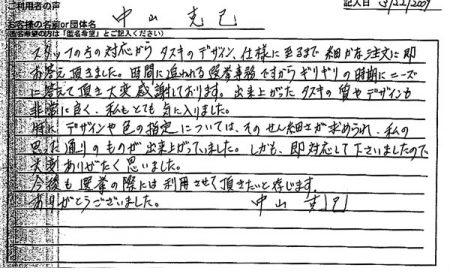 ご利用者の声
記入日 3/22/2009
お客様の名前or団体名 中山 克己
(匿名希望の方は「匿名希望」とご記入ください)
スタッフの方の対応からタスキのデザイン、仕様に至るまで細かな注文に即
お答え頂きました。時間に追われる選挙事務ですからギリギリの時期にニーズ
に答えて頂き大変感謝しております。出来上がったタスキの質やデザインも
非常に良く、私もとても気に入りました。
特にデザインや色の指定については、そのせん細さが求められ、私の
思た通りのものが出来上がっていました。しかも、即対応して下さいましたので
大変ありがたく思いました。
今後も選挙の際には利用させて頂きたいと存じます。
ありがとうございました。 中山 克己